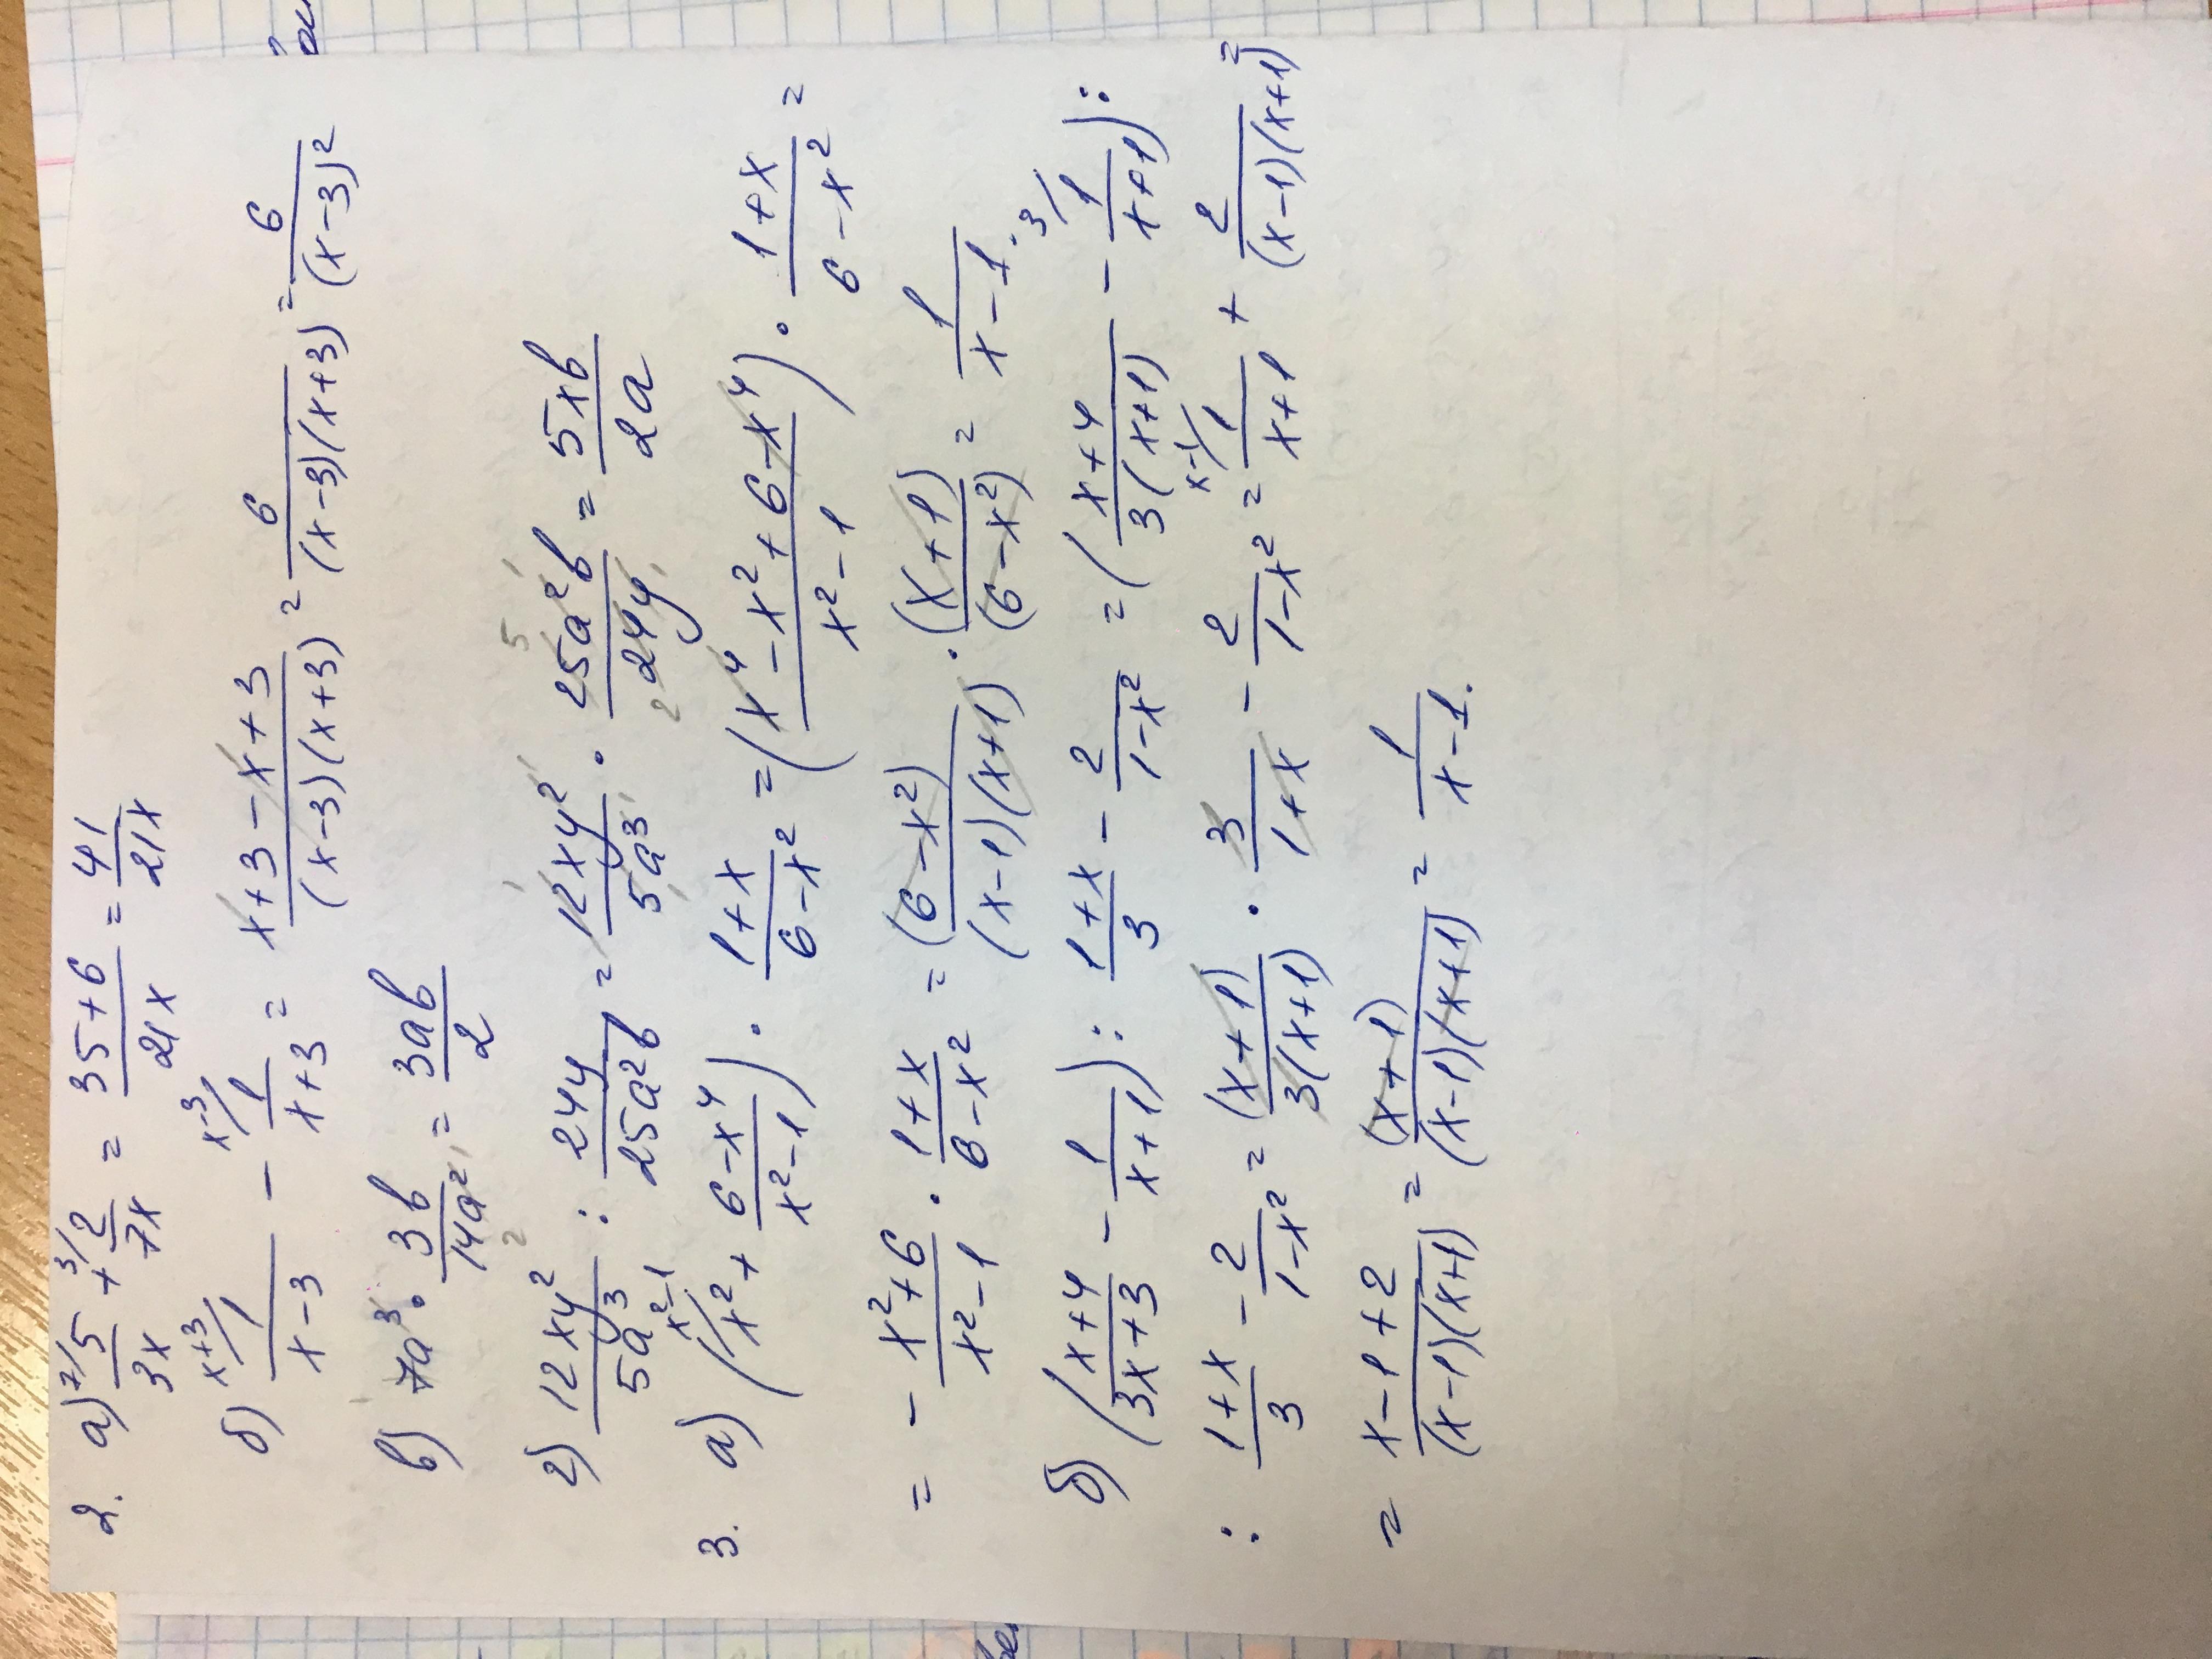 2. а) ⁷⁄5/3x + ³⁄2/7x = (35+6)/21x = 41/21x
б) ˣ⁺³⁄1/(x-3) - ˣ⁻³⁄1/(x+3) = (x+3-x+3)/((x-3)(x+3)) = 6/((x-3)(x+3)) = 6/(x-3)²
в) 7a³ · 3b/14a² = 3ab/2
г) 12xy²/5a³ : 24y/25a²b = 12xy²/5a³ · 25a²b/24y = 5xb/2a
3. а) (ˣ²⁻¹⁄x² + (6-x⁴)/(x²-1)) · (1+x)/(6-x²) = ((x⁴-x²+6-x⁴)/(x²-1)) · (1+x)/(6-x²) =
= (-x²+6)/(x²-1) · (1+x)/(6-x²) = (6-x²)/((x-1)(x+1)) · (x+1)/(6-x²) = 1/(x-1).
б) ((x+4)/(3x+3) - 1/(x+1)) : (1+x)/3 - 2/(1-x²) = ((x+4)/(3(x+1)) - ³⁄1/(x+1)) :
: (1+x)/3 - 2/(1-x²) = (x+1)/(3(x+1)) · 3/(1+x) - 2/(1-x²) = ˣ⁻¹⁄1/(x+1) + 2/((x-1)(x+1)) =
= (x-1+2)/((x-1)(x+1)) = (x+1)/((x-1)(x+1)) = 1/(x-1).